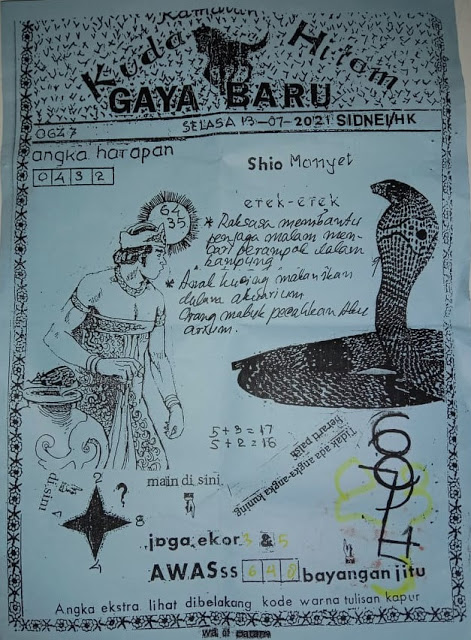 Ramalan
Kuda Hitam
GAYA BARU
SELASA 13-07-2021 SIDNEI/HK
0647
angka harapan
0432
Shio Monyet
erek-erek
64
35
* Raksasa membantu
penjaga malam men-
cari perampok dalam
kampung.
* Anak kucing makanikan
dalam akuarium
Orang mabuk pecahkan Aku
arium.
5+3=17
5+2=16
Tidak ada angka-angka kuning
berarti palsu
main di sini
di sini
2
?
8
4
jaga ekor 3 & 5
AWASss 648 bayangan jitu
Angka ekstra lihat dibelakang kode warna tulisan kapur